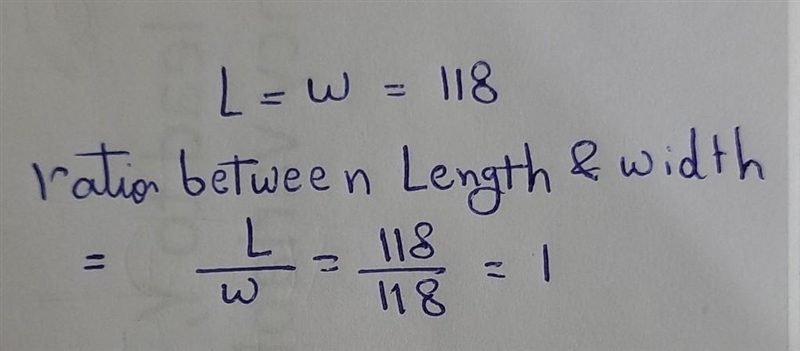 L = W = 118
ration between Length & width
= L/W = 118/118 = 1